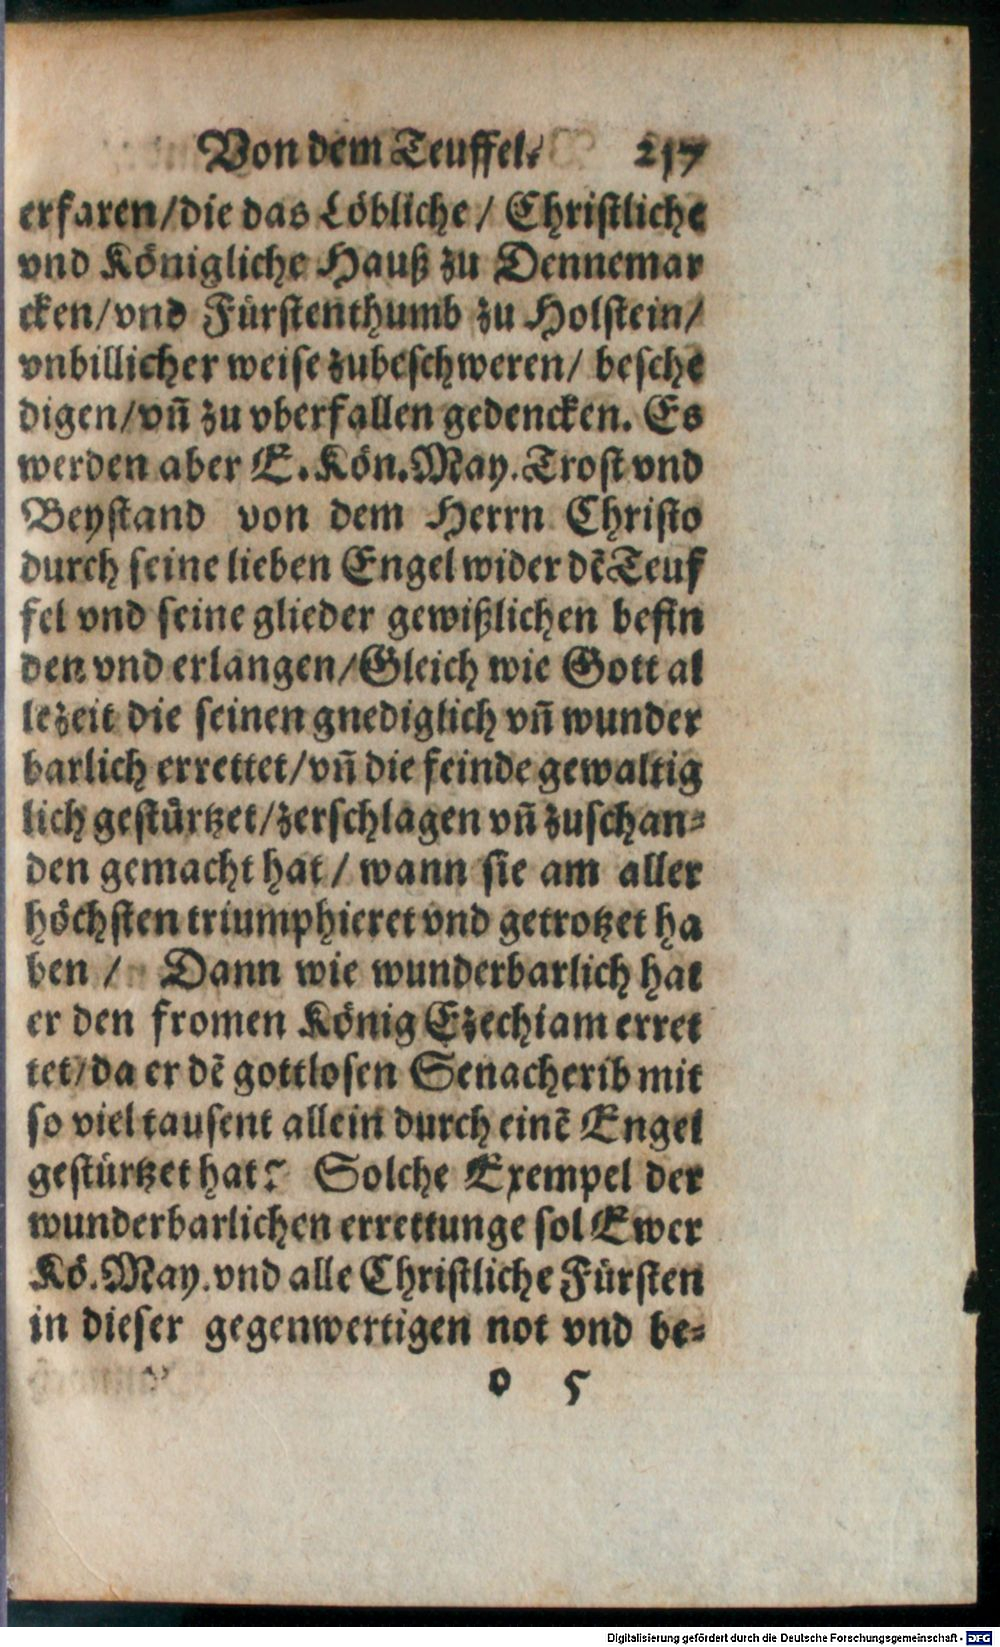 Von dem Teuffel. 217
erfaren/die das Löbliche/ Christliche
vnd Königliche Hauß zu Dennemar
cken/vnd Fürstenthumb zu Holstein/
vnbillicher weise zubeschweren/ besche
digen/vñ zu vberfallen gedencken. Es
werden aber E. Kön. May. Trost vnd
Beystand von dem Herrn Christo
durch seine lieben Engel wider dẽ Teuf
fel vnd seine glieder gewißlichen befin
den vnd erlangen/Gleich wie Gott al
lezeit die seinen gnediglich vñ wunder
barlich errettet/vñ die feinde gewaltig
lich gestürtzet/zerschlagen vñ zuschan⸗
den gemacht hat/ wann sie am aller
höchsten triumphieret vnd getrotzet ha
ben / Dann wie wunderbarlich hat
er den fromen König Ezechiam erret
tet/da er dẽ gottlosen Senacherib mit
so viel tausent allein durch einẽ Engel
gestürtzet hat? Solche Exempel der
wunderbarlichen errettunge sol Ewer
Kö. May. vnd alle Christliche Fürsten
in dieser gegenwertigen not vnd be⸗
o 5
Digitalisierung gefördert durch die Deutsche Forschungsgemeinschaft - DFG